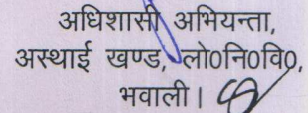 अधिशासी अभियन्ता,
अस्थाई खण्ड, लो०नि०वि०,
भवाली।